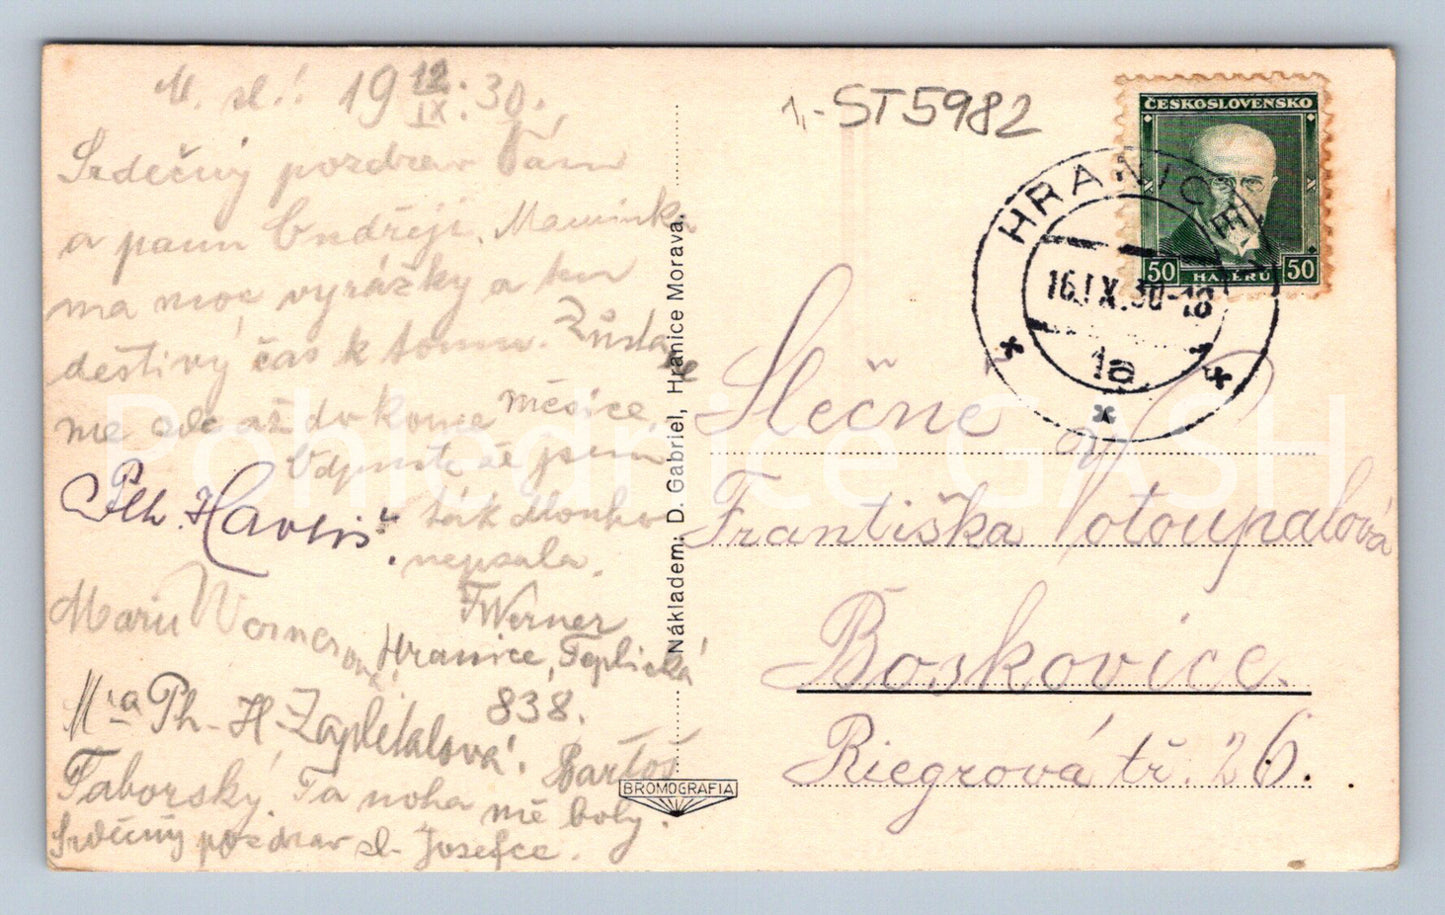 M. sl.! 19 12/IX. 30.
Srdečný pozdrav Vám
a panu Ondřeji. Maminka
ma moc vyrážky a ten
deštivý čas k tomu. Zůsta
ne ale až do konce měsíce.
Odpusťte že jsem
tak dlouho
nepsala.
Ph. Havliš.
Marie Wernerová.
F Werner
Hranice, Teplická
838.
Ph. H. Zapletalová.
Bartoš
Taborský. Ta noha mě boly.
Srdečný pozdrav sl. Josefce.
Nákladem: D. Gabriel, Hranice Morava.
BROMOGRAFIA
1,- ST5982
ČESKOSLOVENSKO
50 HALÉŘŮ 50
HRANICE
16.IX.30-18
1a
Slečně
Františka Votoupalová
Boskovice.
Riegrová tř. 26.
Pohlednice GASH